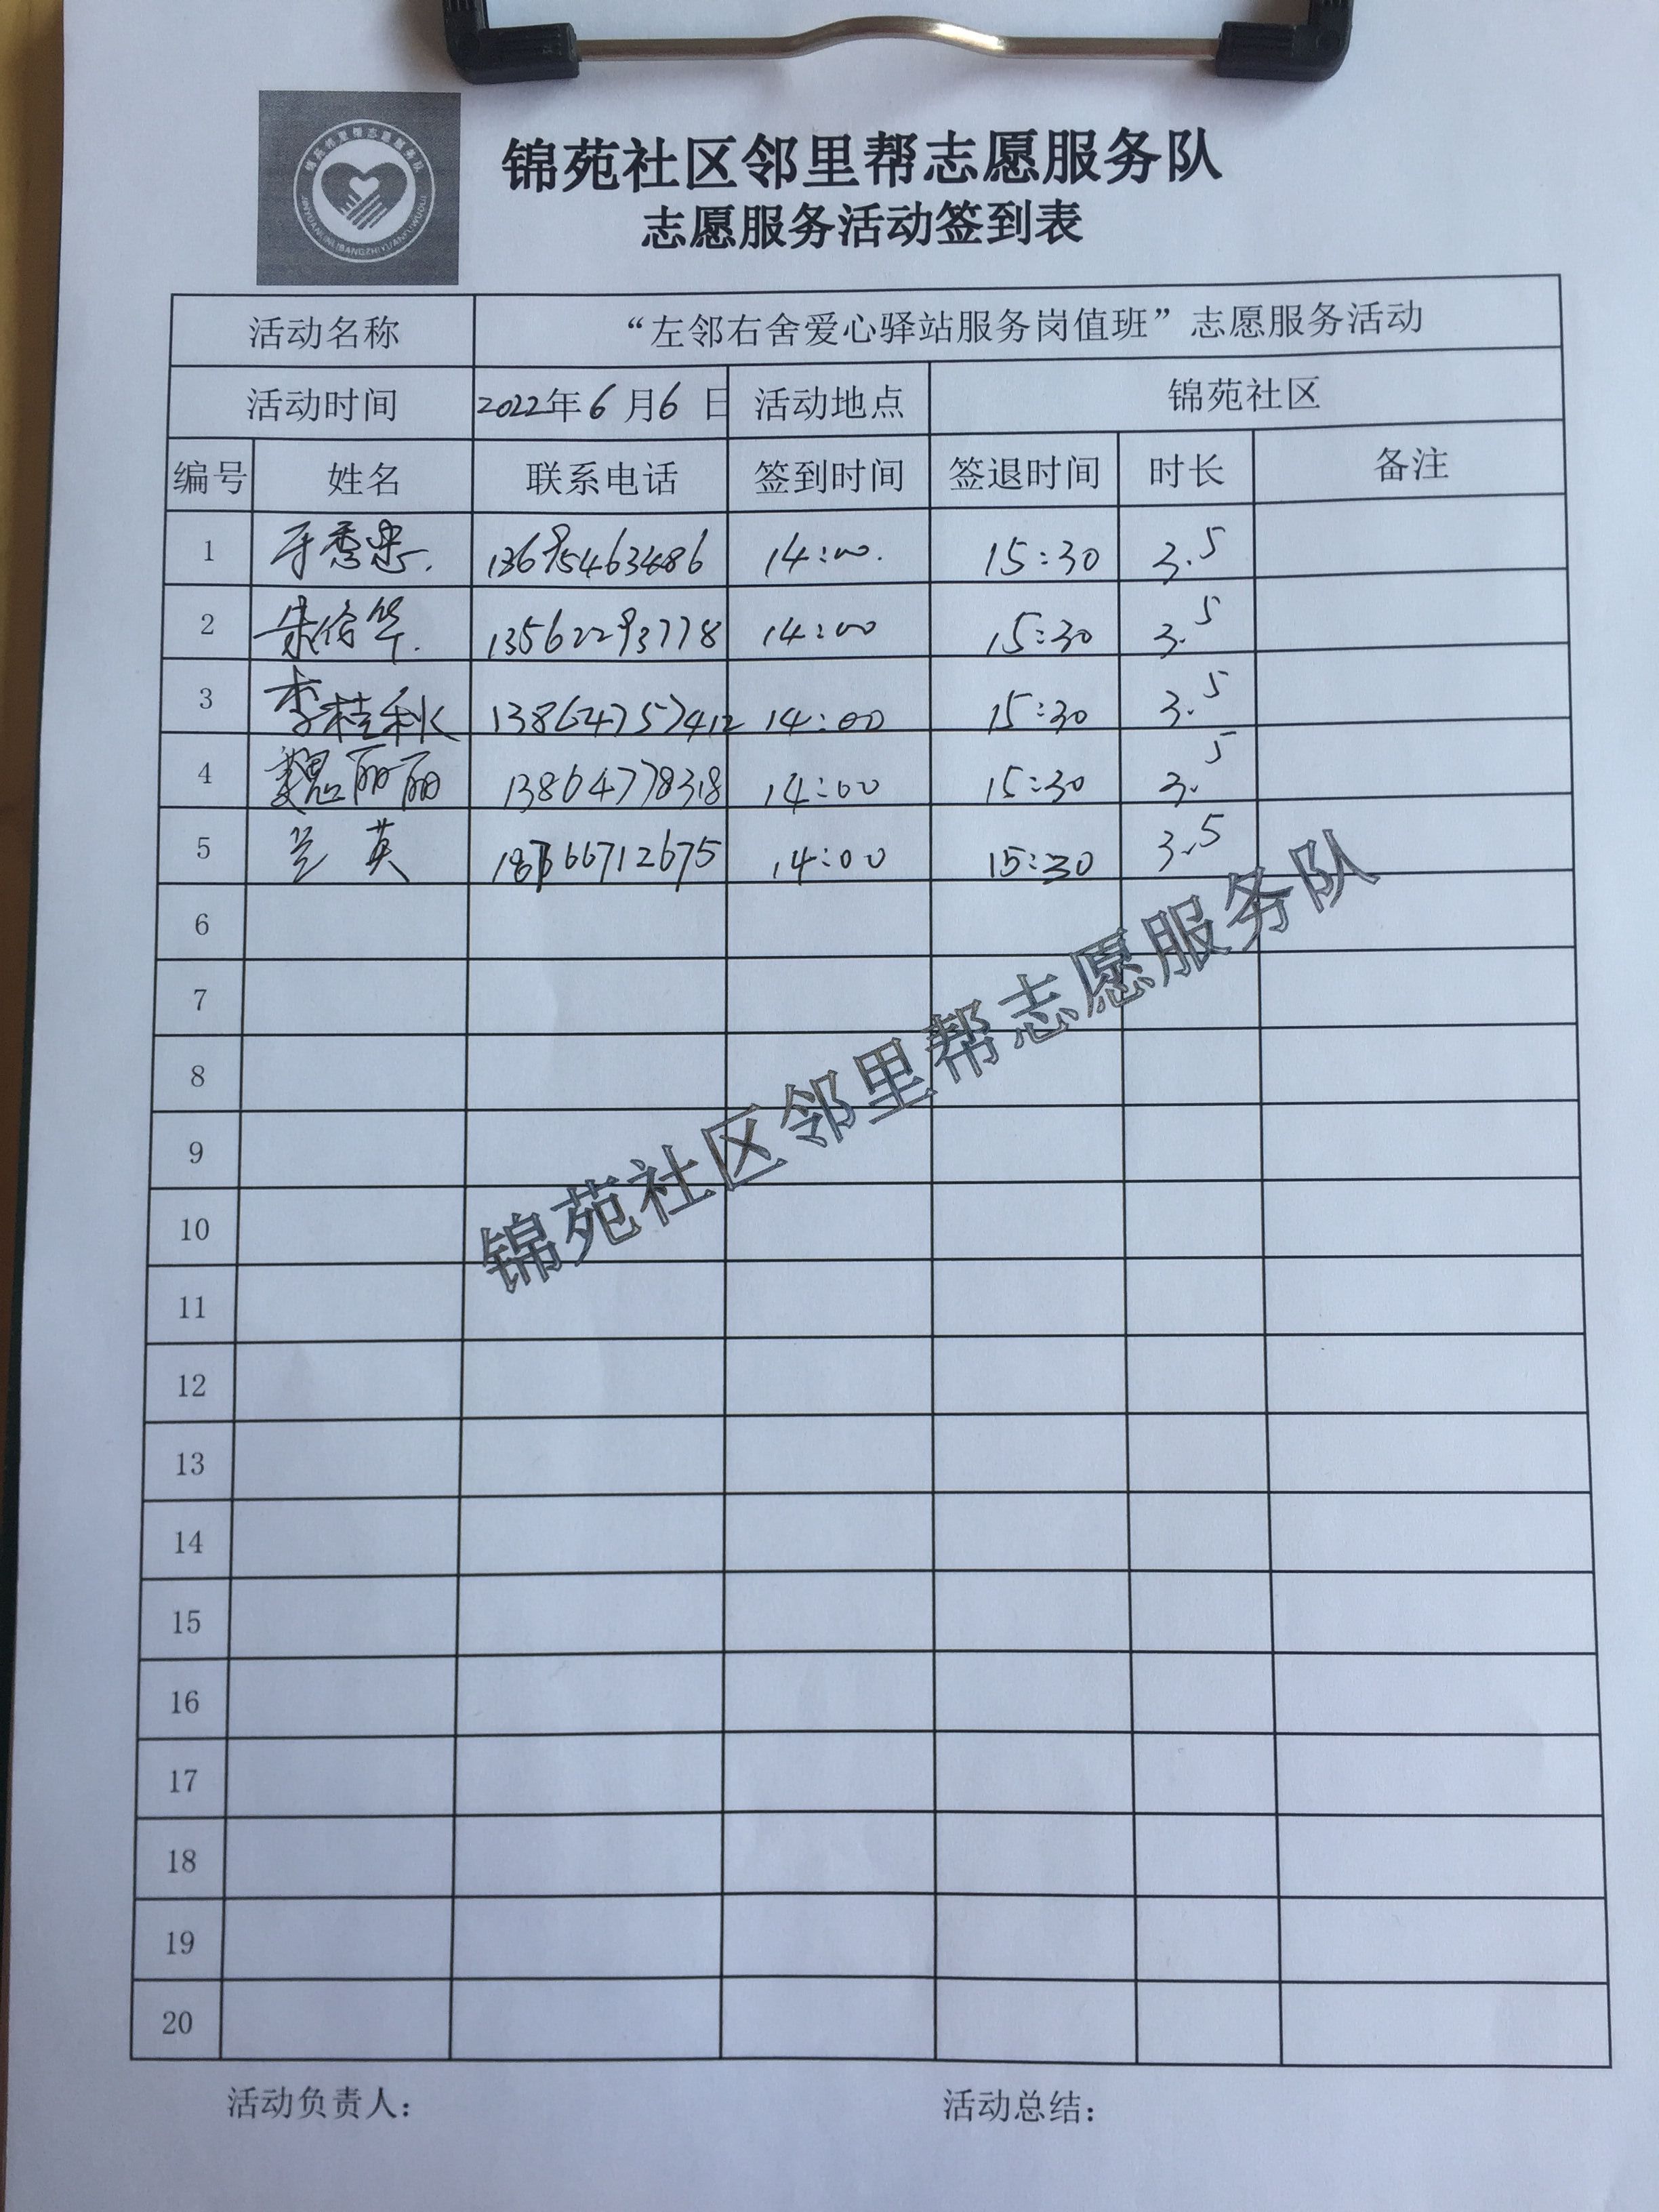 锦苑邻里帮志愿服务队
JINYUANLINLIBANGZHIYUANFUWUDUI
锦苑社区邻里帮志愿服务队
志愿服务活动签到表
活动名称 “左邻右舍爱心驿站服务岗值班”志愿服务活动
活动时间 2022年6月6日 活动地点 锦苑社区
编号 姓名 联系电话 签到时间 签退时间 时长 备注
1 14:00. 15:30 3.5
2 13562293778 14:00 15:30 3.5
3 李桂秋 13864757412 14:00 15:30 3.5
4 魏丽丽 13864778318 14:00 15:30 3.5
5 兰英 14:00 15:30 3.5
6
7
8
9
10
11
12
13
14
15
16
17
18
19
20
锦苑社区邻里帮志愿服务队
活动负责人： 活动总结：